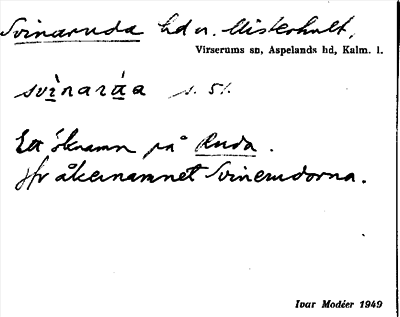 Svinaruda hd o. Misterhult,
Virserums sn, Aspelands hd, Kalm. l.
svìnaráa s. 51.
Ett öknamn på Ruda.
Jfr åkernamnet Svinerudorna.
Ivar Modéer 1949